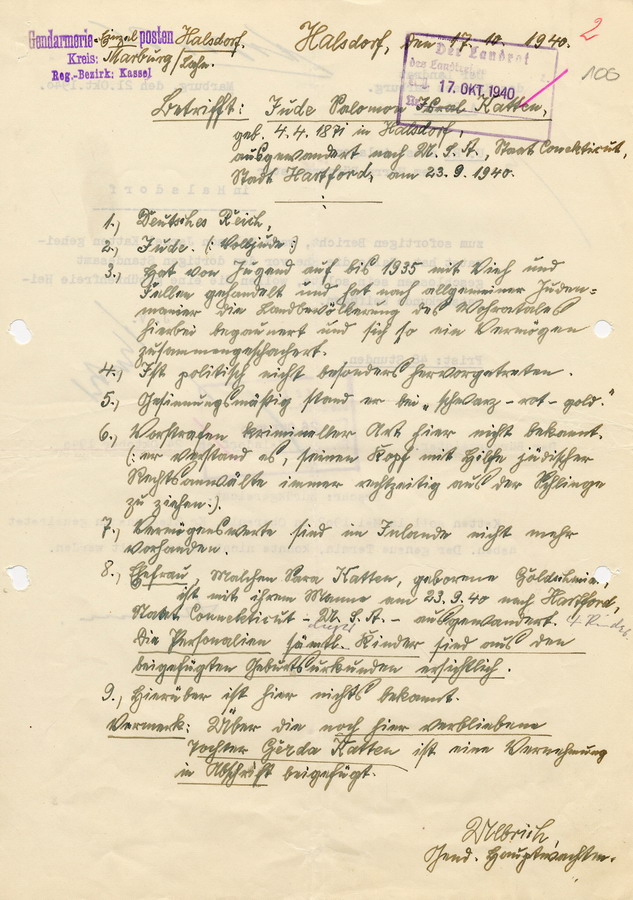 Gendarmerie-Einzelposten Halsdorf.
Kreis: Marburg/Lahn.
Reg.-Bezirk: Kassel
Halsdorf, den 17. 10. 1940.
2
106
Der Landrat
des Landkreises
17. OKT. 1940
Betrifft: Jude Salomon Isral Katten,
geb. 4.4.1871 in Halsdorf,
ausgewandert nach U.S.A., Staat Conektikut,
Stadt Hartford, am 23.9.1940.
1.) Deutsches Reich,
2.) Jude. (: Volljude :)
3.) Hat von Jugend auf bis 1935 mit Vieh und
Fellen gehandelt und hat nach allgemeiner Juden-
manier die Landbevölkerung des Wohratales
hierbei begaunert und sich so ein Vermögen
zusammengeschachert.
4.) Ist politisch nicht besonders hervorgetreten.
5.) Gesinnungsmäßig stand er bei „schwarz-rot-gold."
6.) Vorstrafen krimineller Art hier nicht bekannt.
(: er verstand es, seinen Kopf mit Hilfe jüdischer
Rechtsanwälte immer rechtzeitig aus der Schlinge
zu ziehen :).
7.) Vermögenswerte sind im Inlande nicht mehr
vorhanden.
8.) Ehefrau, Malchen Sara Katten, geborene Goldschmidt,
ist mit ihrem Manne am 23.9.40 nach Hartford,
Staat Connektikut - U.S.A. - ausgewandert.
Die Personalien sämtl. Kinder sind aus den
beigefügten Geburtsurkunden ersichtlich.
9.) Hierüber ist hier nichts bekannt.
Vermerk: Über die noch hier verbliebene
Tochter Gerda Katten ist eine Vernehmung
in Abschrift beigefügt.
Ulbrich,
Gend. Hauptwachtm.